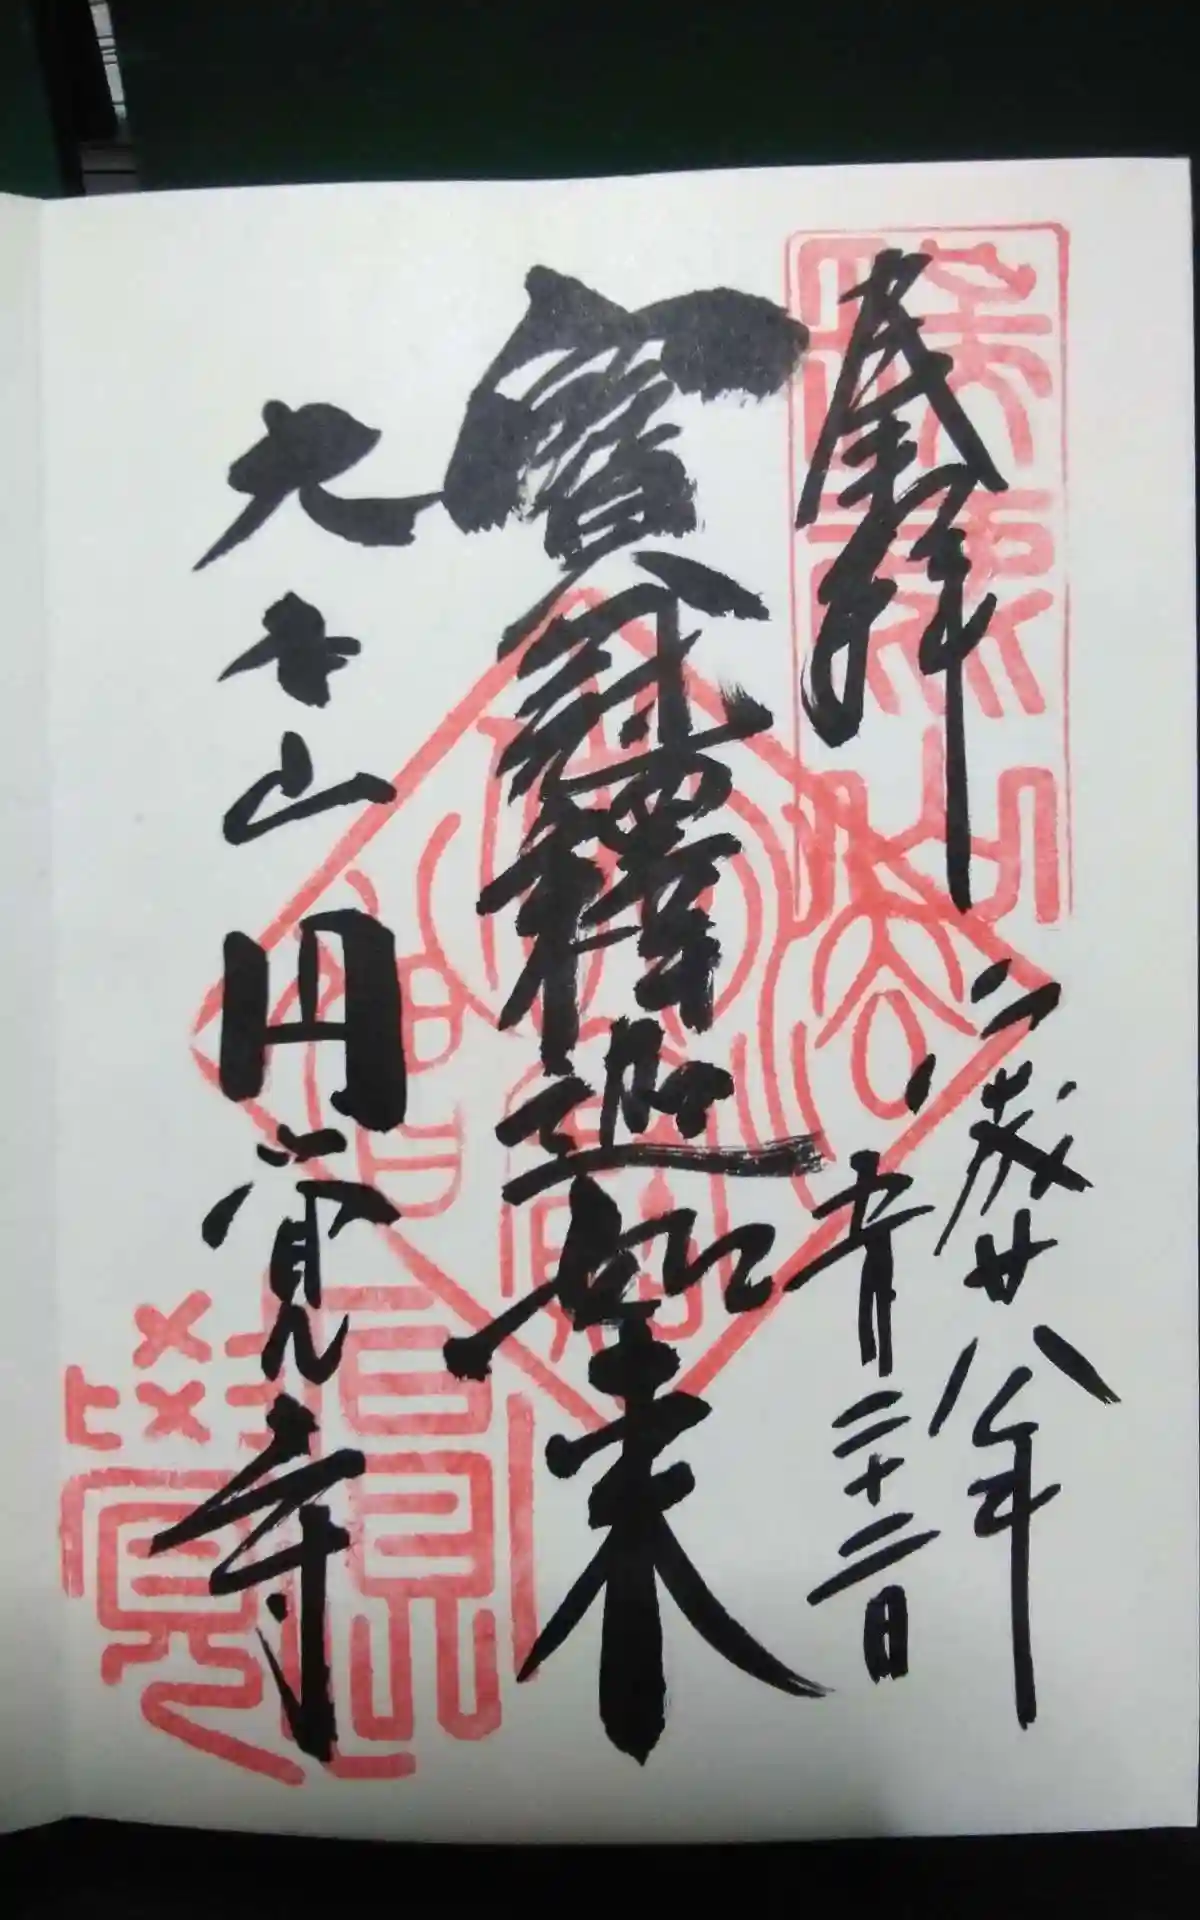 奉拝
平成廿八年
五月二十二日
寶冠釋迦如来
大本山円覚寺